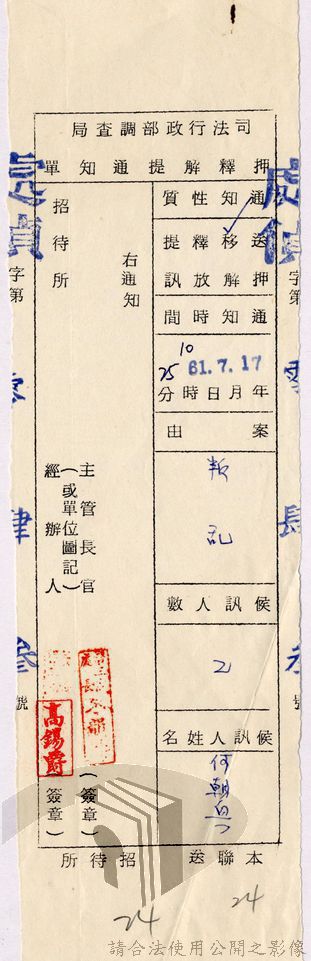 司法行政部調查局
押釋解提通知單
通知性質
送移釋提
押解放訊
通知時間
10 25
61.7.17
年月日時分
案由
叛亂
候訊人數
2
候訊人姓名
何朝
右通知
招待所
主管長官
(或單位圖記)
經辦人
(簽章)
(簽章)
高錫爵
本聯送招待所
處偵
字第
零
肆
叁
號
處偵
字第
零
肆
叁
號
24
24
請合法使用公開之影像